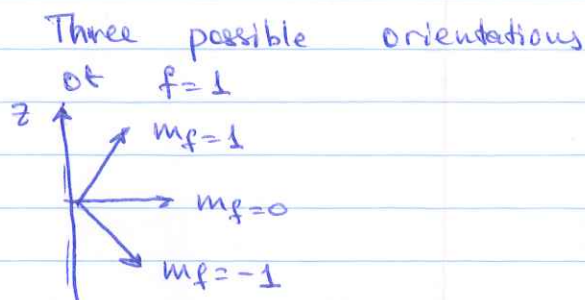 Three possible orientations
of f=1
z
mf=1
mf=0
mf=-1